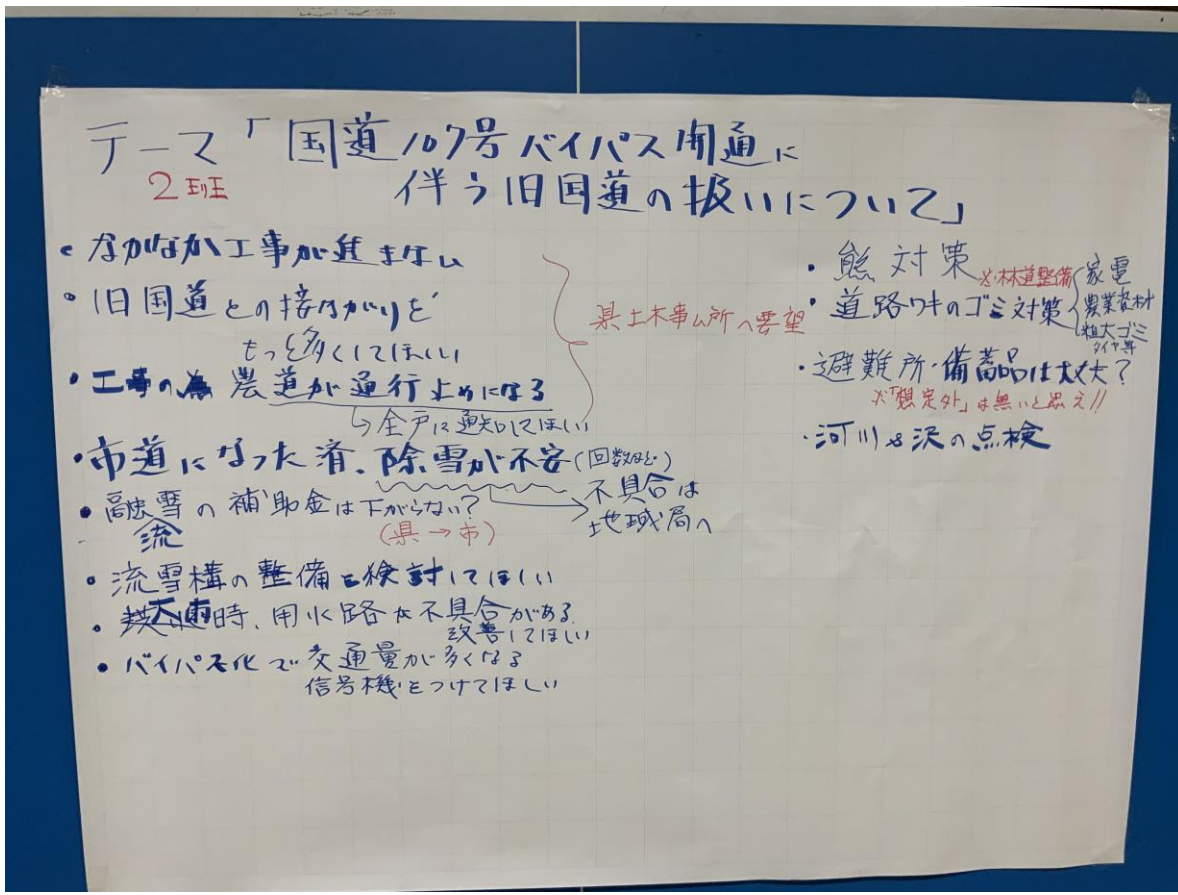 テーマ「国道107号バイパス開通に
伴う旧国道の扱いについて」
2班
・なかなか工事が進まない
・旧国道との接ながりを
もっと多くしてほしい
・工事の為農道が通行止めになる
↳全戸に通知してほしい
県土木事ム所へ要望
・市道になった済、除雪が不安(回数など)
不具合は
地域局へ
・融雪の補助金は下がらない?
流
(県→市)
・流雪構の整備を検討してほしい
・大雨時、用水路な不具合がある
改善してほしい
・バイパス化で交通量が多くなる
信号機をつけてほしい
・熊対策
※林道整備
・道路ワキのゴミ対策
家電
農業資材
粗大ゴミ
タイヤ等
・避難所・備蓄品は大丈夫?
※「想定外」は無いと思え!!
・河川や沢の点検